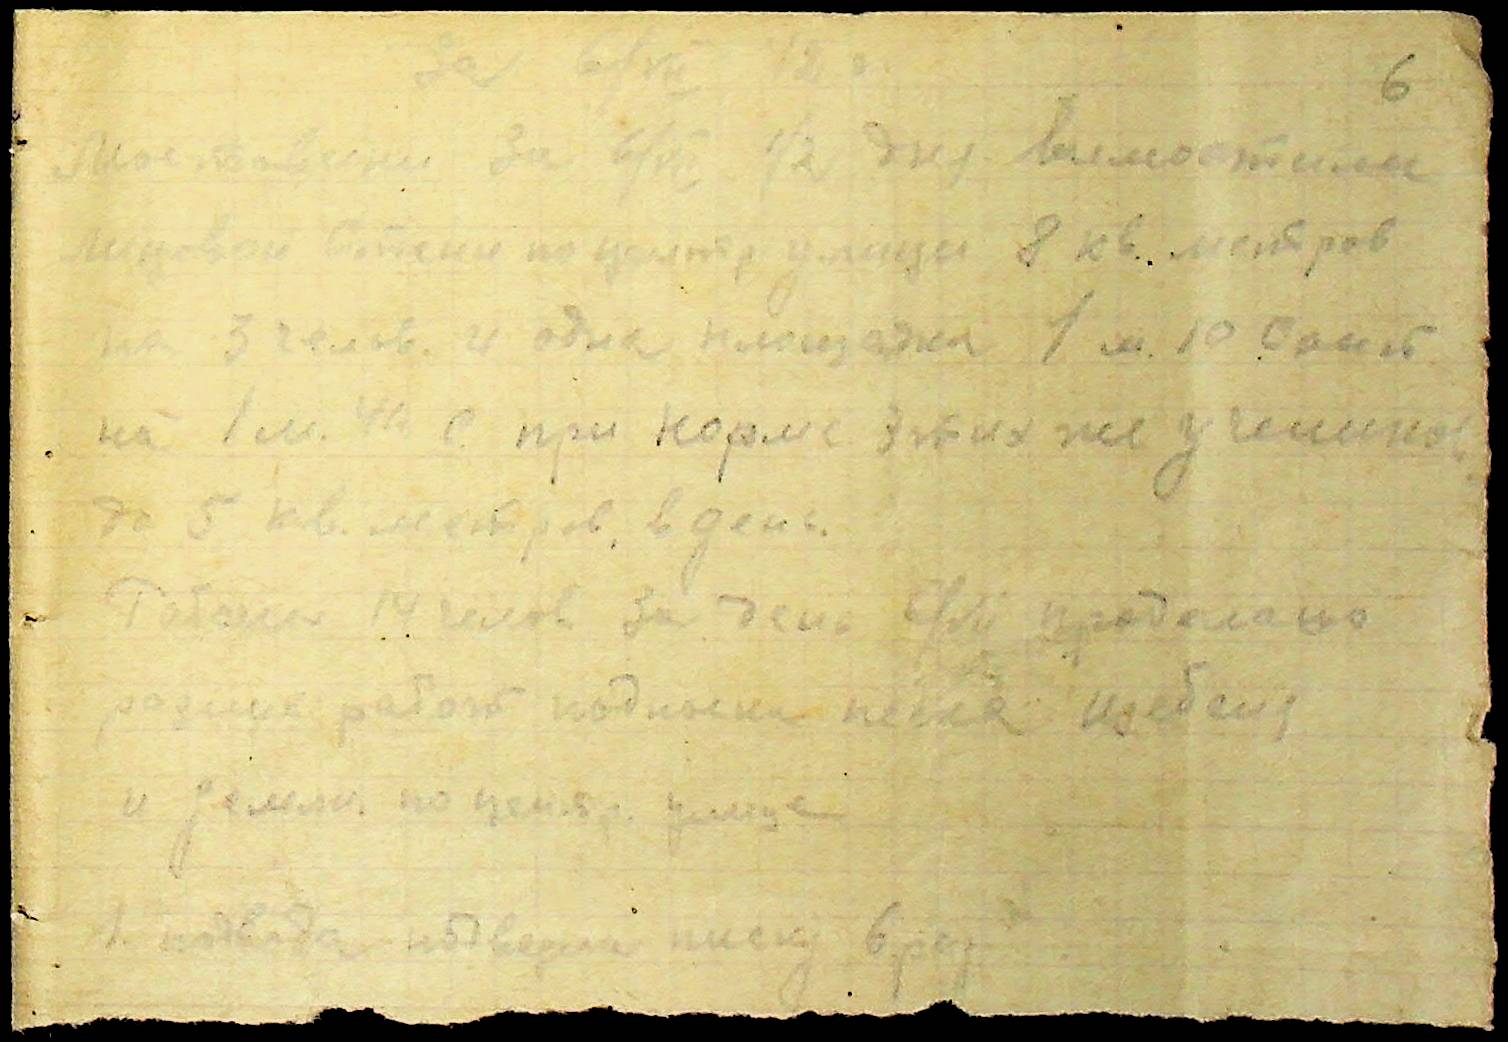 За 6/VII 1/2 д
6
Мостовени За 6/VII 1/2 дня вымостили
Лицовой по центр улицы 8 кв. метров
на 3 челов. и одна площадка 1 м. 10 Сант
на 1 м. 40 с при норме этих же учеников
до 5 кв. метров в день.
Рабочих 14 челов за день 6/VII проделано
работ подноска песка щебень
и земли. по центр. улице
1. подвода подвезла писку 6 раз